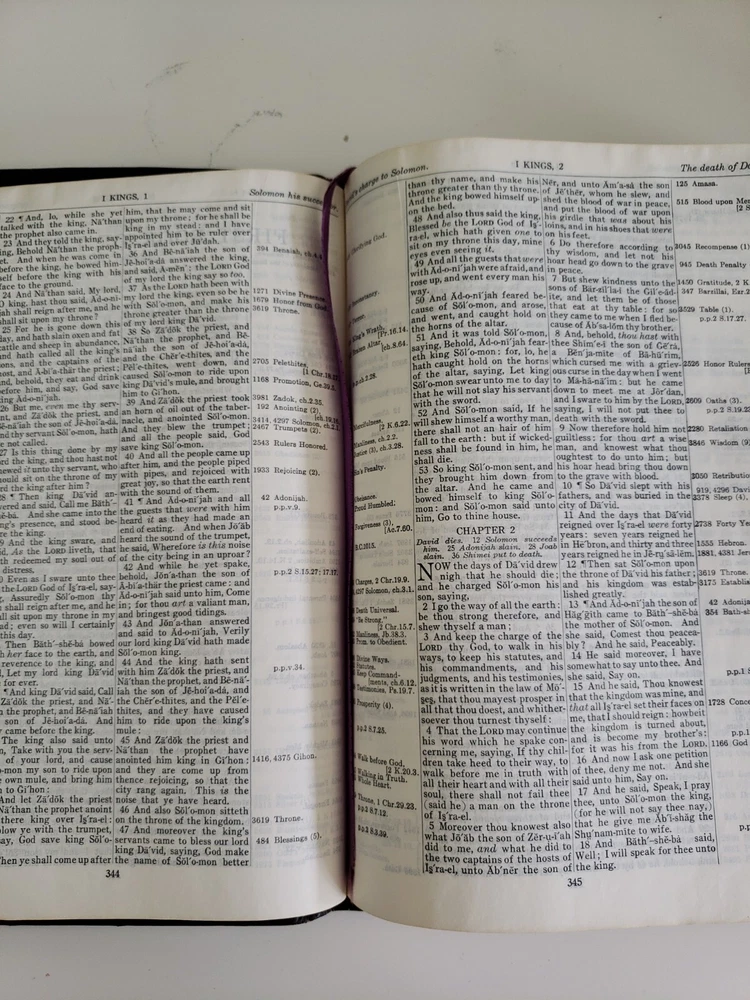 I KINGS, 1
Solomon his
22 ¶ And, lo, while she yet
talked with the king, Nā′than
the prophet also came in.
23 And they told the king, say-
ing, Behold Nā′than the proph-
et. And when he was come in
before the king, he bowed him-
self before the king with his
face to the ground.
24 And Nā′than said, My lord,
O king, hast thou said, Ad-o-nī-
jah shall reign after me, and he
shall sit upon my throne?
25 For he is gone down this
day, and hath slain oxen and fat
cattle and sheep in abundance,
and hath called all the king's
sons, and the captains of the
host, and Ā-bī′a-thär the priest;
and, behold, they eat and drink
before him, and say, God save
king Ăd-o-nī′jah.
26 But me, even me thy serv-
ant, and Zā′dŏk the priest, and
Bē-nā′iah the son of Jē-hoi′a-dá,
and thy servant Sŏl′o-mon, hath
he not called.
27 Is this thing done by my
lord the king, and thou hast not
shewed it unto thy servant, who
should sit on the throne of my
lord the king after him?
28 ¶ Then king Dā′vid an-
swered and said, Call me Băth′-
shē-bá. And she came into the
king's presence, and stood be-
fore the king.
29 And the king sware, and
said, As the LORD liveth, that
hath redeemed my soul out of
all distress,
30 Even as I sware unto thee
by the LORD God of Iṣ′ra-el, say-
ing, Assuredly Sŏl′o-mon thy
son shall reign after me, and he
shall sit upon my throne in my
stead; even so will I certainly
do this day.
31 Then Băth′-shē-bá bowed
with her face to the earth, and
did reverence to the king, and
said, Let my lord king Dā′vid
live for ever.
32 ¶ And king Dā′vid said, Call
me Zā′dŏk the priest, and Nā′-
than the prophet, and Bē-nā′iah
the son of Jē-hoi′a-dá. And
they came before the king.
33 The king also said unto
them, Take with you the serv-
ants of your lord, and cause
Sŏl′o-mon my son to ride upon
mine own mule, and bring him
down to Gī′hon:
34 And let Zā′dŏk the priest
and Nā′than the prophet anoint
him there king over Iṣ′ra-el:
and blow ye with the trumpet,
and say, God save king Sŏl′o-
mon.
35 Then ye shall come up after
him, that he may come and sit
upon my throne; for he shall be
king in my stead: and I have
appointed him to be ruler over
Iṣ′ra-el and over Jū′dah.
36 And Bē-nā′iah the son of
Jē-hoi′a-dá answered the king,
and said, Ā-mĕn′: the LORD God
of my lord the king say so too.
37 As the LORD hath been with
my lord the king, even so be he
with Sŏl′o-mon, and make his
throne greater than the throne
of my lord king Dā′vid.
38 So Zā′dŏk the priest, and
Nā′than the prophet, and Bē-
nā′iah the son of Jē-hoi′a-dá,
and the Chĕr′e-thites, and the
Pĕl′e-thites, went down, and
caused Sŏl′o-mon to ride upon
king Dā′vid's mule, and brought
him to Gī′hon.
39 And Zā′dŏk the priest took
an horn of oil out of the taber-
nacle, and anointed Sŏl′o-mon.
And they blew the trumpet;
and all the people said, God
save king Sŏl′o-mon.
40 And all the people came up
after him, and the people piped
with pipes, and rejoiced with
great joy, so that the earth rent
with the sound of them.
41 ¶ And Ăd-o-nī′jah and all
the guests that were with him
heard it as they had made an
end of eating. And when Jō′ăb
heard the sound of the trumpet,
he said, Wherefore is this noise
of the city being in an uproar?
42 And while he yet spake,
behold, Jŏn′a-than the son of
Ā-bī′a-thär the priest came: and
Ăd-o-nī′jah said unto him, Come
in; for thou art a valiant man,
and bringest good tidings.
43 And Jŏn′a-than answered
and said to Ăd-o-nī′jah, Verily
our lord king Dā′vid hath made
Sŏl′o-mon king.
44 And the king hath sent
with him Zā′dŏk the priest, and
Nā′than the prophet, and Bē-nā′-
iah the son of Jē-hoi′a-dá, and
the Chĕr′e-thites, and the Pĕl′e-
thites, and they have caused
him to ride upon the king's
mule:
45 And Zā′dŏk the priest and
Nā′than the prophet have
anointed him king in Gī′hon:
and they are come up from
thence rejoicing, so that the
city rang again. This is the
noise that ye have heard.
46 And also Sŏl′o-mon sitteth
on the throne of the kingdom.
47 And moreover the king's
servants came to bless our lord
king Dā′vid, saying, God make
the name of Sŏl′o-mon better
394 Benaiah, ch.4.4
1271 Divine Presence
1679 Honor from God
3619 Throne.
2705 Pelethites,
[1 Chr.18.17.
1168 Promotion, Ge.39.5.
3981 Zadok, ch.2.35.
192 Anointing (2).
3414, 4297 Solomon, ch.2.1
2467 Trumpets (2).
2543 Rulers Honored.
1933 Rejoicing (2).
42 Adonijah.
p.p.v.9.
p.p.2 S.15.27; 17.17.
p.p.v.34.
1416, 4375 Gihon.
3619 Throne.
484 Blessings (5).
344
charge to Solomon.
I KINGS, 2
The death of
than thy name, and make his
throne greater than thy throne.
And the king bowed himself up-
on the bed.
48 And also thus said the king,
Blessed be the LORD God of Iṣ′-
ra-el, which hath given one to
sit on my throne this day, mine
eyes even seeing it.
49 And all the guests that were
with Ăd-o-nī′jah were afraid, and
rose up, and went every man his
way.
50 And Ăd-o-nī′jah feared be-
cause of Sŏl′o-mon, and arose,
and went, and caught hold on
the horns of the altar.
51 And it was told Sŏl′o-mon,
saying, Behold, Ăd-o-nī′jah fear-
eth king Sŏl′o-mon: for, lo, he
hath caught hold on the horns
of the altar, saying, Let king
Sŏl′o-mon swear unto me to day
that he will not slay his servant
with the sword.
52 And Sŏl′o-mon said, If he
will shew himself a worthy man,
there shall not an hair of him
fall to the earth: but if wicked-
ness shall be found in him, he
shall die.
53 So king Sŏl′o-mon sent, and
they brought him down from
the altar. And he came and
bowed himself to king Sŏl′o-
mon: and Sŏl′o-mon said unto
him, Go to thine house.
CHAPTER 2
David dies. 12 Solomon succeeds
him. 25 Adonijah slain. 28 Joab
slain. 36 Shimei put to death.
NOW the days of Dā′vid drew
nigh that he should die;
and he charged Sŏl′o-mon his
son, saying,
2 I go the way of all the earth:
be thou strong therefore, and
shew thyself a man;
3 And keep the charge of the
LORD thy God, to walk in his
ways, to keep his statutes, and
his commandments, and his
judgments, and his testimonies,
as it is written in the law of Mō′-
ṣeṣ, that thou mayest prosper in
all that thou doest, and whither-
soever thou turnest thyself:
4 That the LORD may continue
his word which he spake con-
cerning me, saying, If thy chil-
dren take heed to their way, to
walk before me in truth with
all their heart and with all their
soul, there shall not fail thee
(said he) a man on the throne
of Iṣ′ra-el.
5 Moreover thou knowest also
what Jō′ăb the son of Zĕr-ụ-ī′ah
did to me, and what he did to
the two captains of the hosts of
Iṣ′ra-el, unto Ăb′nēr the son of
Nēr, and unto Ăm′a-sá the son
of Jē′thēr, whom he slew, and
shed the blood of war in peace,
and put the blood of war upon
his girdle that was about his
loins, and in his shoes that were
on his feet.
6 Do therefore according to
thy wisdom, and let not his
hoar head go down to the grave
in peace.
7 But shew kindness unto the
sons of Bär-zĭl′la-ī the Gĭl′e-ăd-
ite, and let them be of those
that eat at thy table: for so
they came to me when I fled be-
cause of Ăb′sa-lŏm thy brother.
8 And, behold, thou hast with
thee Shĭm′e-ī the son of Gē′rá,
a Bĕn′ja-mite of Bā-hū′rim,
which cursed me with a griev-
ous curse in the day when I went
to Mā-hā-nā′im: but he came
down to meet me at Jôr′dan,
and I sware to him by the LORD,
saying, I will not put thee to
death with the sword.
9 Now therefore hold him not
guiltless: for thou art a wise
man, and knowest what thou
oughtest to do unto him; but
his hoar head bring thou down
to the grave with blood.
10 ¶ So Dā′vid slept with his
fathers, and was buried in the
city of Dā′vid.
11 And the days that Dā′vid
reigned over Iṣ′ra-el were forty
years: seven years reigned he
in Hē′bron, and thirty and three
years reigned he in Jē-rụ′sa-lĕm.
12 ¶ Then sat Sŏl′o-mon upon
the throne of Dā′vid his father;
and his kingdom was estab-
lished greatly.
13 ¶ And Ăd-o-nī′jah the son of
Hăg′gĭth came to Băth′-shē-bá
the mother of Sŏl′o-mon. And
she said, Comest thou peacea-
bly? And he said, Peaceably.
14 He said moreover, I have
somewhat to say unto thee. And
she said, Say on.
15 And he said, Thou knowest
that the kingdom was mine, and
that all Iṣ′ra-el set their faces on
me, that I should reign: howbeit
the kingdom is turned about,
and is become my brother's:
for it was his from the LORD.
16 And now I ask one petition
of thee, deny me not. And she
said unto him, Say on.
17 And he said, Speak, I pray
thee, unto Sŏl′o-mon the king,
(for he will not say thee nay,)
that he give me Ăb′ĭ-shăg the
Shụ′năm-mite to wife.
18 And Băth′-shē-bá said,
Well; I will speak for thee unto
the king.
125 Amasa.
515 Blood upon Men
3045 Recompense (1)
945 Death Penalty
1450 Gratitude, 2 K
347 Barzillai, Ezr.2
3529 Table (1).
p.p.2 S.17.27.
2526 Honor Rulers
2609 Oaths (3).
p.p.2 S.19.2
2280 Retaliation
3846 Wisdom (9)
3050 Retribution
919, 4296 David
3378 Sleep (4).
2738 Forty Years
1555 Hebron.
1881, 4381 Jeru
3619 Throne.
3175 Establish
42 Adonijah
354 Bath-sh
p.p.1
1728 Conce
p.p.1
1166 God
p.p
345